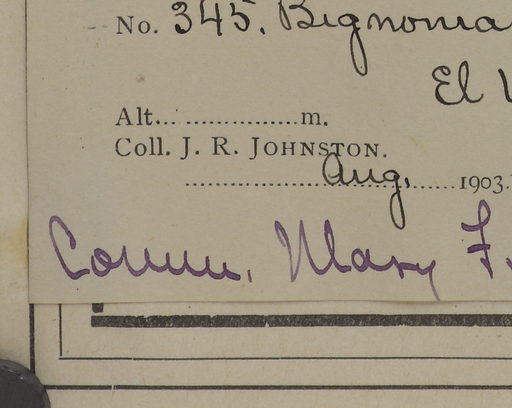 No. 345. Bignonia
El V
Alt... ................m.
Coll. J. R. JOHNSTON.
..........................Aug.......1903.
Comm. Mary F.